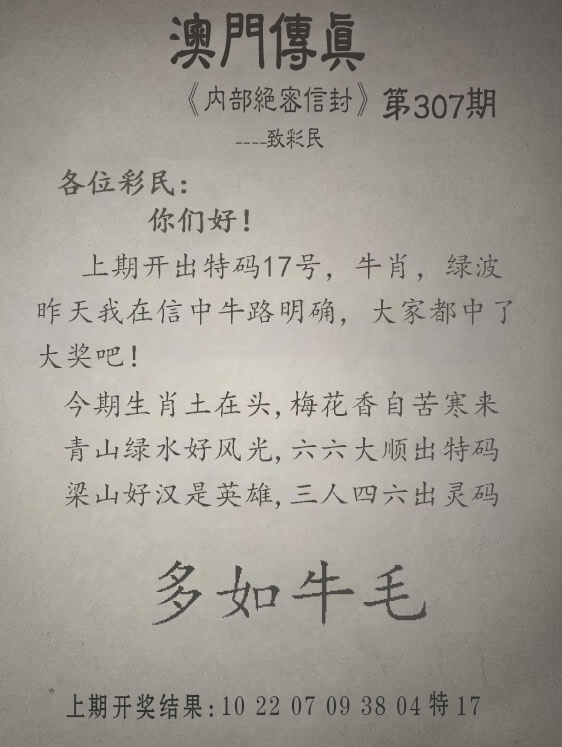 澳門傳眞
《内部絕密信封》第307期
----致彩民
各位彩民：
你们好！
上期开出特码17号，牛肖，绿波
昨天我在信中牛路明确，大家都中了
大奖吧！
今期生肖土在头,梅花香自苦寒来
青山绿水好风光,六六大顺出特码
梁山好汉是英雄,三人四六出灵码
多如牛毛
上期开奖结果：10 22 07 09 38 04 特 17